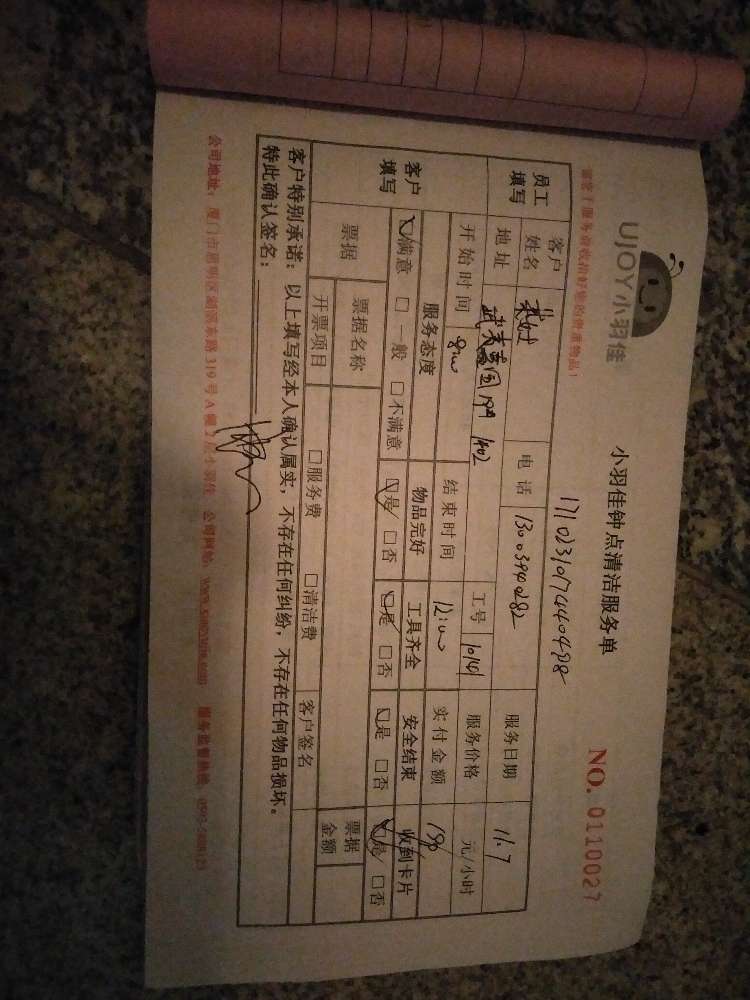 UJOY小羽佳
小羽佳钟点清洁服务单
NO. 0110027
请您于服务前收拾好您的贵重物品!
员工填写
客户姓名
电话 13003940282
服务日期 11.7
地址 1402
工号 10101
服务价格 元/小时
开始时间 8:00
结束时间 12:00
实付金额
客户填写
服务态度 物品完好 工具齐全 安全结束 收到卡片
满意 □一般 □不满意 是 □否 是 □否 是 □否 是 □否
票据 票据名称 票据金额
开票项目 □服务费 □清洁费 客户签名
客户特别承诺:以上填写经本人确认属实,不存在任何纠纷,不存在任何物品损坏。
特此确认签名:
公司地址:厦门市思明区 东路319号A幢2层小羽佳 公司网站: 服务监督热线: